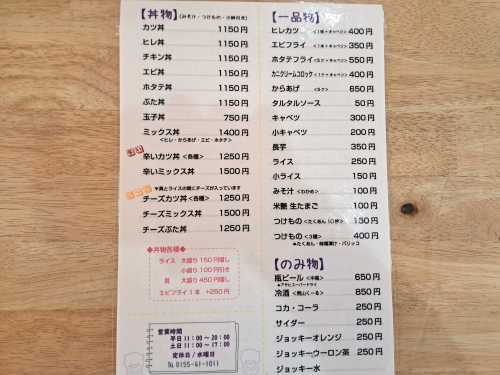 【丼物】(みそ汁・つけもの・小鉢付き)
カツ丼 1150円
ヒレ丼 1150円
チキン丼 1150円
エビ丼 1150円
ホタテ丼 1150円
ぶた丼 1150円
玉子丼 750円
ミックス丼 1400円
<ヒレ・からあげ・エビ・ホタテ>
辛いカツ丼<各種> 1250円
辛いミックス丼 1500円
▼具とライスの間にチーズが入っています
チーズカツ丼<各種> 1250円
チーズミックス丼 1500円
チーズぶた丼 1250円
◆丼物各種◆
ライス 大盛り150円増し
小盛り100円引き
具 大盛り450円増し
エビフライ1本 +250円
営業時間
平日11:00~20:00
土日11:00~17:00
定休日/水曜日
℡ 0155-61-1011
【一品物】
ヒレカツ 400円
エビフライ 350円
ホタテフライ 550円
カニクリームコロッケ 400円
からあげ 650円
タルタルソース 50円
キャベツ 300円
小キャベツ 200円
長芋 350円
ライス 250円
小ライス 150円
みそ汁<わかめ> 100円
米艶 生たまご 100円
つけもの<たくあん10杯> 150円
つけもの<3種> 400円
【のみ物】
瓶ビール<中瓶> 650円
▲アサヒスーパードライ
冷酒 850円
コカ・コーラ 250円
サイダー 250円
ジョッキーオレンジ 250円
ジョッキーウーロン茶 250円
ジョッキー水